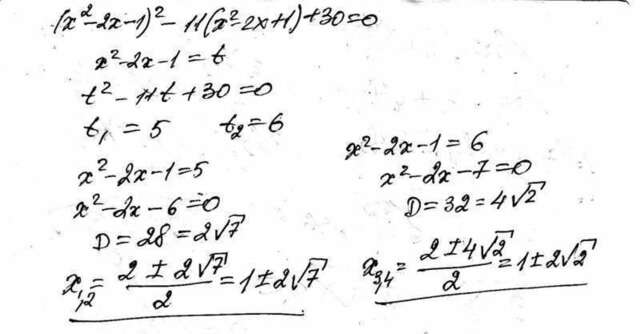 (x²-2x-1)² - 11(x²-2x+1)+30=0
x²-2x-1=t
t²-11t+30=0
t₁=5 t₂=6
x²-2x-1=5
x²-2x-6=0
D=28=2√7
x₁,₂ = (2±2√7)/2 = 1±2√7
x²-2x-1=6
x²-2x-7=0
D=32=4√2
x₃,₄ = (2±4√2)/2 = 1±2√2